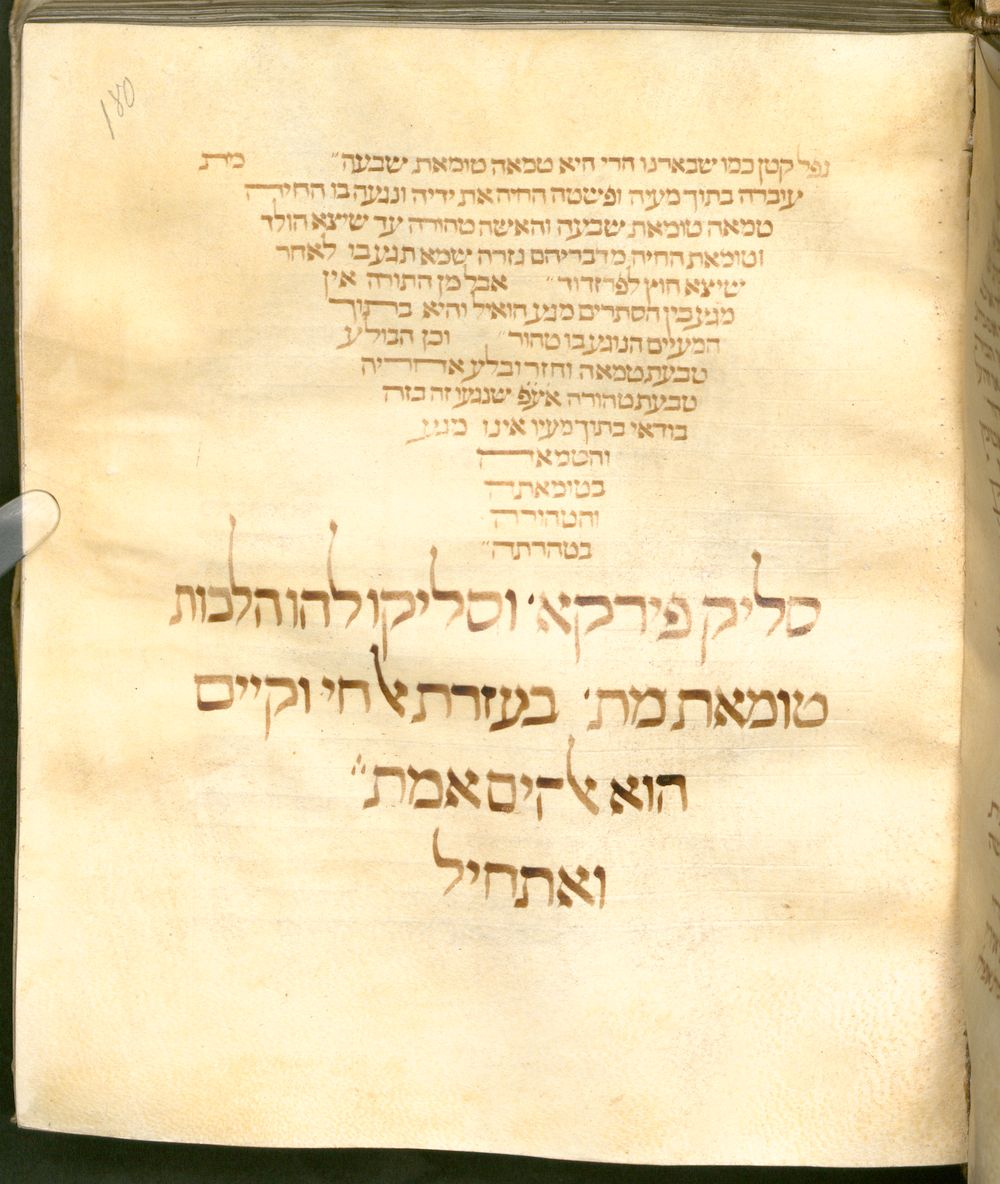 180
נפל קטן כמו שבארנו הרי היא טמאה טומאת שבעה״ מת
עוברה בתוך מעיה ופשטה החיה את ידיה ונגעה בו החיה
טמאה טומאת שבעה והאשה טהורה עד שיצא הולד
וטומאת החיה מדבריהם גזרה שמא תגע בו לאחר
שיצא חוץ לפרוזדוד״ אבל מן התורה אין
מגע בין הסתרים מגע הואיל והיא בתוך
המעיים הנוגע בו טהור״ וכן הבולע
טבעת טמאה וחזר ובלע אחריה
טבעת טהורה אע״פ שנגעו זה בזה
בודאי בתוך מעיו אינו מגע
והטמאה
בטומאתה
והטהורה
בטהרתה״
סליק פירקא׳ וסליקו להו הלכות
טומאת מת׳ בעזרת אל חי וקיים
הוא אלהים אמת״
ואתחיל